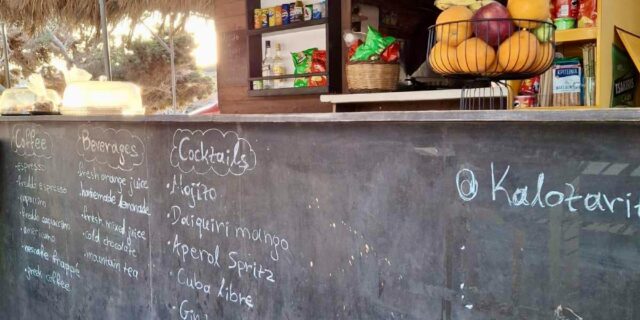 Coffee
espresso
freddo espresso
freddo cappuccino
nescafe frappé
greek coffee
Beverages
fresh orange juice
homemade lemonade
fresh mixed juice
cold chocolate
mountain tea
Cocktails
• Mojito
• Daiquiri mango
• Aperol Spritz
• Cuba libre
• Gin
@Kalotarit